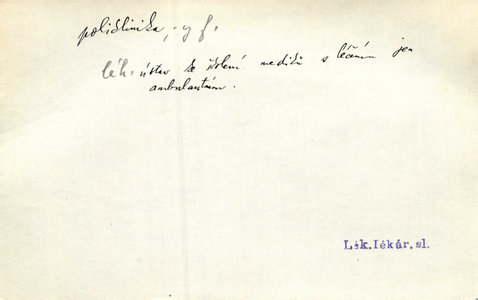 poliklinika, -y f.
lék. ústav ke školení mediků s léčením jen
ambulantním.
Lék.lékár.sl.